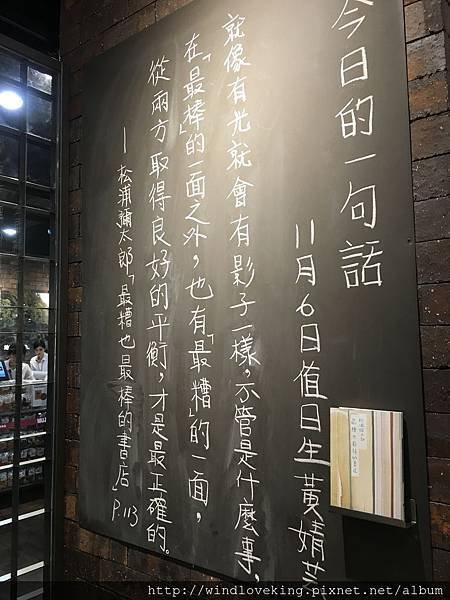 今日的一句話
11月6日值日生黃婧芸
就像有光就會有影子一樣，不管是什麼事，
在「最棒」的一面之外，也有「最糟」的一面，
從兩方取得良好的平衡，才是最正確的。
—松浦彌太郎「最糟也最棒的書店」P.113
http://windloveking.pixnet.net/album